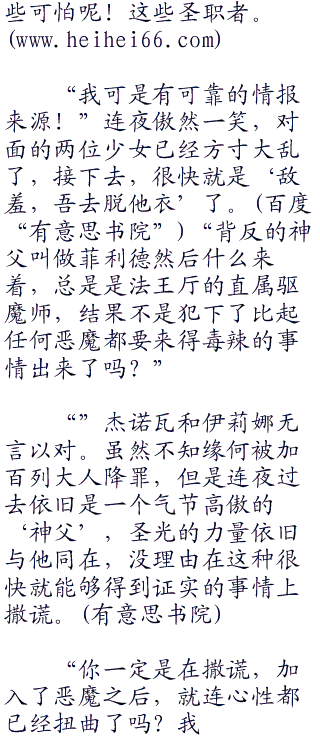 些可怕呢！这些圣职者。
(www.heihei66.com)
“我可是有可靠的情报
来源！”连夜傲然一笑，对
面的两位少女已经方寸大乱
了，接下去，很快就是‘敌
羞，吾去脱他衣’了。(百度
“有意思书院”)“背反的神
父叫做菲利德然后什么来
着，总是是法王厅的直属驱
魔师，结果不是犯下了比起
任何恶魔都要来得毒辣的事
情出来了吗？”
“”杰诺瓦和伊莉娜无
言以对。虽然不知缘何被加
百列大人降罪，但是连夜过
去依旧是一个气节高傲的
‘神父’，圣光的力量依旧
与他同在，没理由在这种很
快就能够得到证实的事情上
撒谎。(有意思书院)
“你一定是在撒谎，加
入了恶魔之后，就连心性都
已经扭曲了吗？我